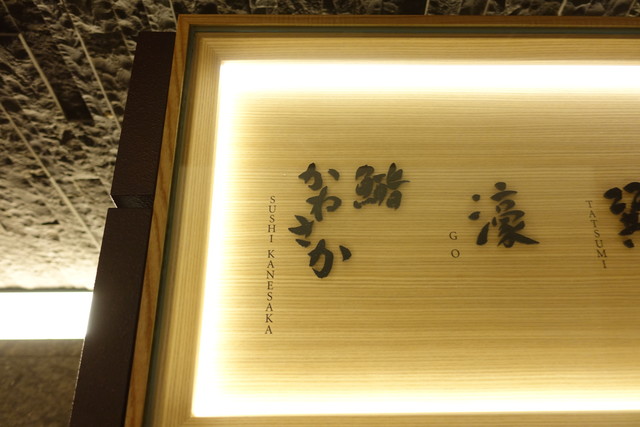 鮨
かねさか
SUSHI KANESAKA
濠
GO
TATSUMI